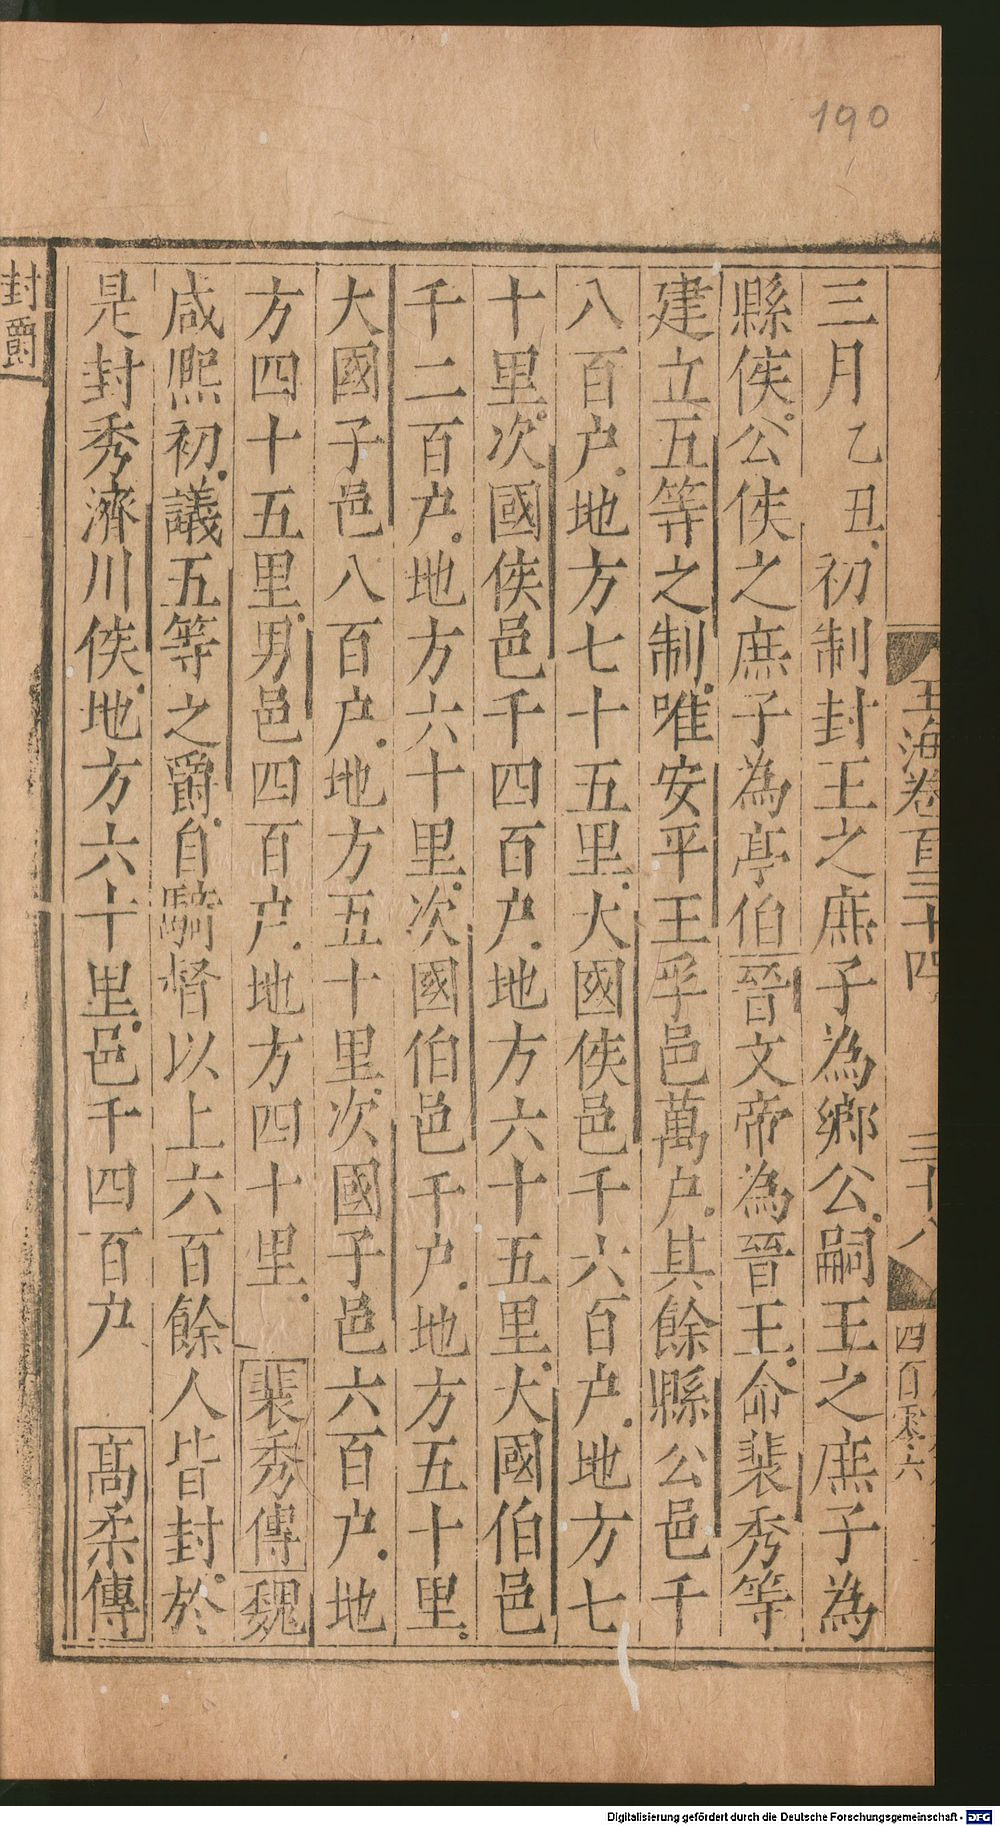 190
玉海卷百三十四 三十八
四百零六
三月乙丑初制封王之庶子為鄉公嗣王之庶子為
縣侯公侯之庶子為亭伯晉文帝為晉王命裴秀等
建立五等之制唯安平王孚邑萬户其餘縣公邑千
八百户地方七十五里大國侯邑千六百户地方七
十里次國侯邑千四百户地方六十五里大國伯邑
千二百户地方六十里次國伯邑千户地方五十里
大國子邑八百户地方五十里次國子邑六百户地
方四十五里男邑四百户地方四十里裴秀傳魏
咸熙初議五等之爵自騎督以上六百餘人皆封於
是封秀濟川侯地方六十里邑千四百户高柔傳
封爵
Digitalisierung gefördert durch die Deutsche Forschungsgemeinschaft - DFG